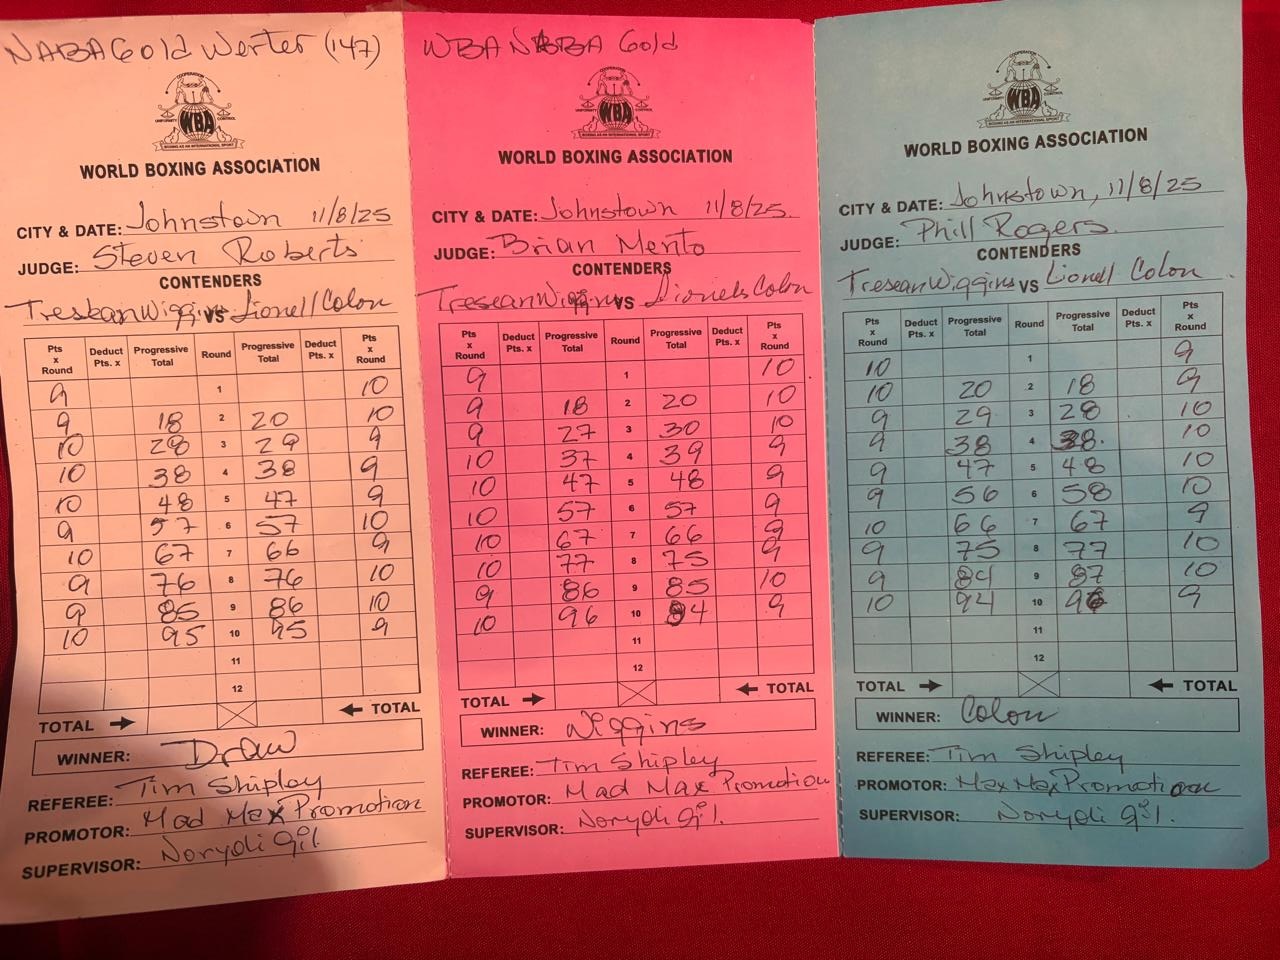 NABA Gold Welter (147)
COOPERATION
UNIFORMITY CONTROL
WBA
BOXING AS AN INTERNATIONAL SPORT
WORLD BOXING ASSOCIATION
CITY & DATE: Johnstown 11/8/25
JUDGE: Steven Roberts
CONTENDERS
Tresean Wiggins VS Lionell Colon
Pts x Round Deduct Pts. x Progressive Total Round Progressive Total Deduct Pts. x Pts x Round
9 1 10
9 18 2 20 10
10 28 3 29 9
10 38 4 38 9
10 48 5 47 9
9 57 6 57 10
10 67 7 66 9
9 76 8 76 10
9 85 9 86 10
10 95 10 95 9
11
12
TOTAL → ← TOTAL
WINNER: Draw
REFEREE: Tim Shipley
PROMOTOR: Mad Max Promotion
SUPERVISOR: Norydi Gil.
WBA NABA Gold
COOPERATION
UNIFORMITY CONTROL
WBA
BOXING AS AN INTERNATIONAL SPORT
WORLD BOXING ASSOCIATION
CITY & DATE: Johnstown 11/8/25.
JUDGE: Brian Mento
CONTENDERS
Tresean Wiggins VS Colon
Pts x Round Deduct Pts. x Progressive Total Round Progressive Total Deduct Pts. x Pts x Round
9 1 10
9 18 2 20 10
9 27 3 30 10
10 37 4 39 9
10 47 5 48 9
10 57 6 57 9
10 67 7 66 9
10 77 8 75 9
9 86 9 85 10
10 96 10 94 9
11
12
TOTAL → ← TOTAL
WINNER: Wiggins
REFEREE: Tim Shipley
PROMOTOR: Mad Max Promotion
SUPERVISOR: Norydi Gil.
COOPERATION
UNIFORMITY CONTROL
WBA
BOXING AS AN INTERNATIONAL SPORT
WORLD BOXING ASSOCIATION
CITY & DATE: Johnstown, 11/8/25
JUDGE: Phill Rogers.
CONTENDERS
Tresean Wiggins VS Lionell Colon
Pts x Round Deduct Pts. x Progressive Total Round Progressive Total Deduct Pts. x Pts x Round
10 1 9
10 20 2 18 9
9 29 3 28 10
9 38 4 38. 10
9 47 5 48 10
9 56 6 58 10
10 66 7 67 9
9 75 8 77 10
9 84 9 87 10
10 94 10 96 9
11
12
TOTAL → ← TOTAL
WINNER: Colon
REFEREE: Tim Shipley
PROMOTOR: Max Max Promotion
SUPERVISOR: Norydi Gil.